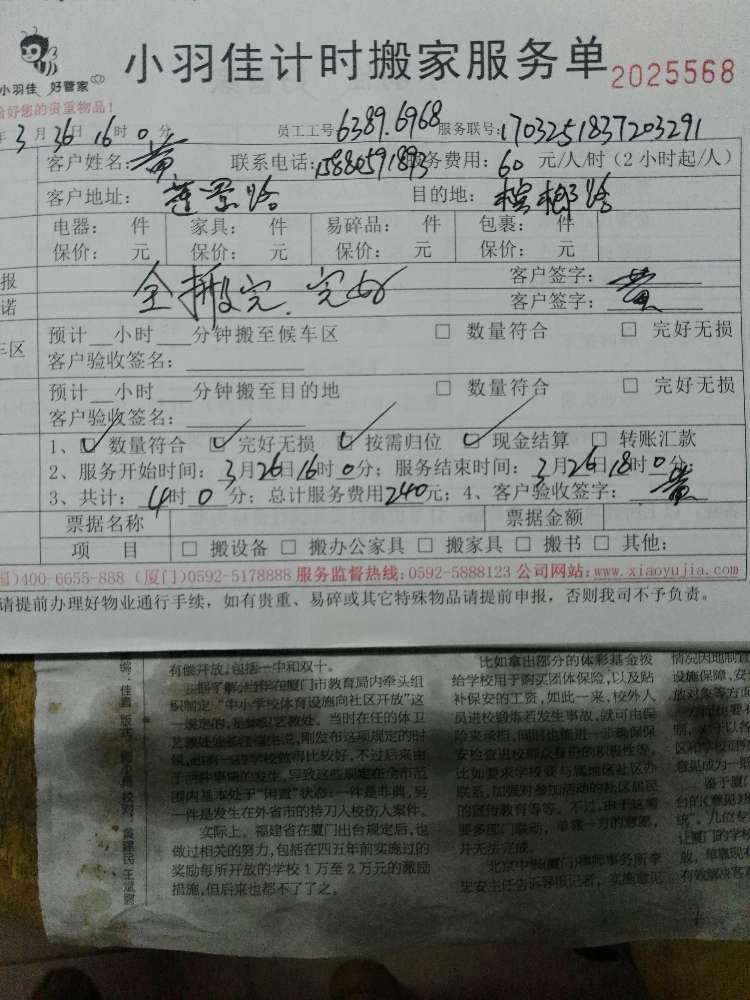 小羽佳计时搬家服务单 2025568
小羽佳 好管家
给好您的贵重物品!
年3月26日16时0分 员工工号6389.6968 服务联号:1703251837203291
客户姓名:黄 联系电话:15880591893 服务费用:60元/人/时(2小时起/人)
客户地址:莲景路 目的地:槟榔路
电器: 件 家具: 件 易碎品: 件 包裹: 件
保价: 元 保价: 元 保价: 元 保价: 元
报 全搬完.完好 客户签字:
诺 客户签字:黄
车区 预计__小时___分钟搬至候车区 □ 数量符合 □ 完好无损
客户验收签名:
预计__小时___分钟搬至目的地 □ 数量符合 □ 完好无损
客户验收签名:
1、☑ 数量符合 ☑ 完好无损 ☑ 按需归位 ☑ 现金结算 □ 转账汇款
2、服务开始时间:3月26日16时0分;服务结束时间:3月26日18时0分
3、共计:4时0分;总计服务费用240元;4、客户验收签字:黄
票据名称 票据金额
项 目 □ 搬设备 □ 搬办公家具 □ 搬家具 □ 搬书 □ 其他:
)400-6655-888 (厦门)0592-5178888 服务监督热线:0592-5888123 公司网站:www.xiaoyujia.com
请提前办理好物业通行手续,如有贵重、易碎或其它特殊物品请提前申报,否则我司不予负责。
有偿开放,包括一中和双十。
据了解,当年在厦门市教育局内牵头组
织制定“中小学校体育设施向社区开放”这
一规定的,是体卫艺教处。当时在任的体卫
候,也有一些学校做得比较好,不过后来由
于两件事情的发生,导致这些规定在全市范
围内基本处于“闲置”状态:一件是非典,另
一件是发生在外省市的持刀入校伤人案件。
实际上,福建省在厦门出台规定后,也
做过相关的努力,包括在四五年前实施过的
奖励每所开放的学校1万至2万元的激励
措施,但后来也都不了了之。
比如拿出部分的体彩基金拨
给学校用于购买团体保险,以及贴
补保安的工资,如此一来,校外人
员进校锻炼若发生事故,就可由保
险来承担,同时也能进一步确保保
安检查进校群众身份的积极性等,
比如要求学校要与属地区社区办
联系,加强对参加活动的社区居民
的宣传教育等等。不过,由于这需
要多部门联动,单靠一方的意愿,
并无法完成。
北京中银(厦门)律师事务所李
思安主任告诉导报记者,实施意见